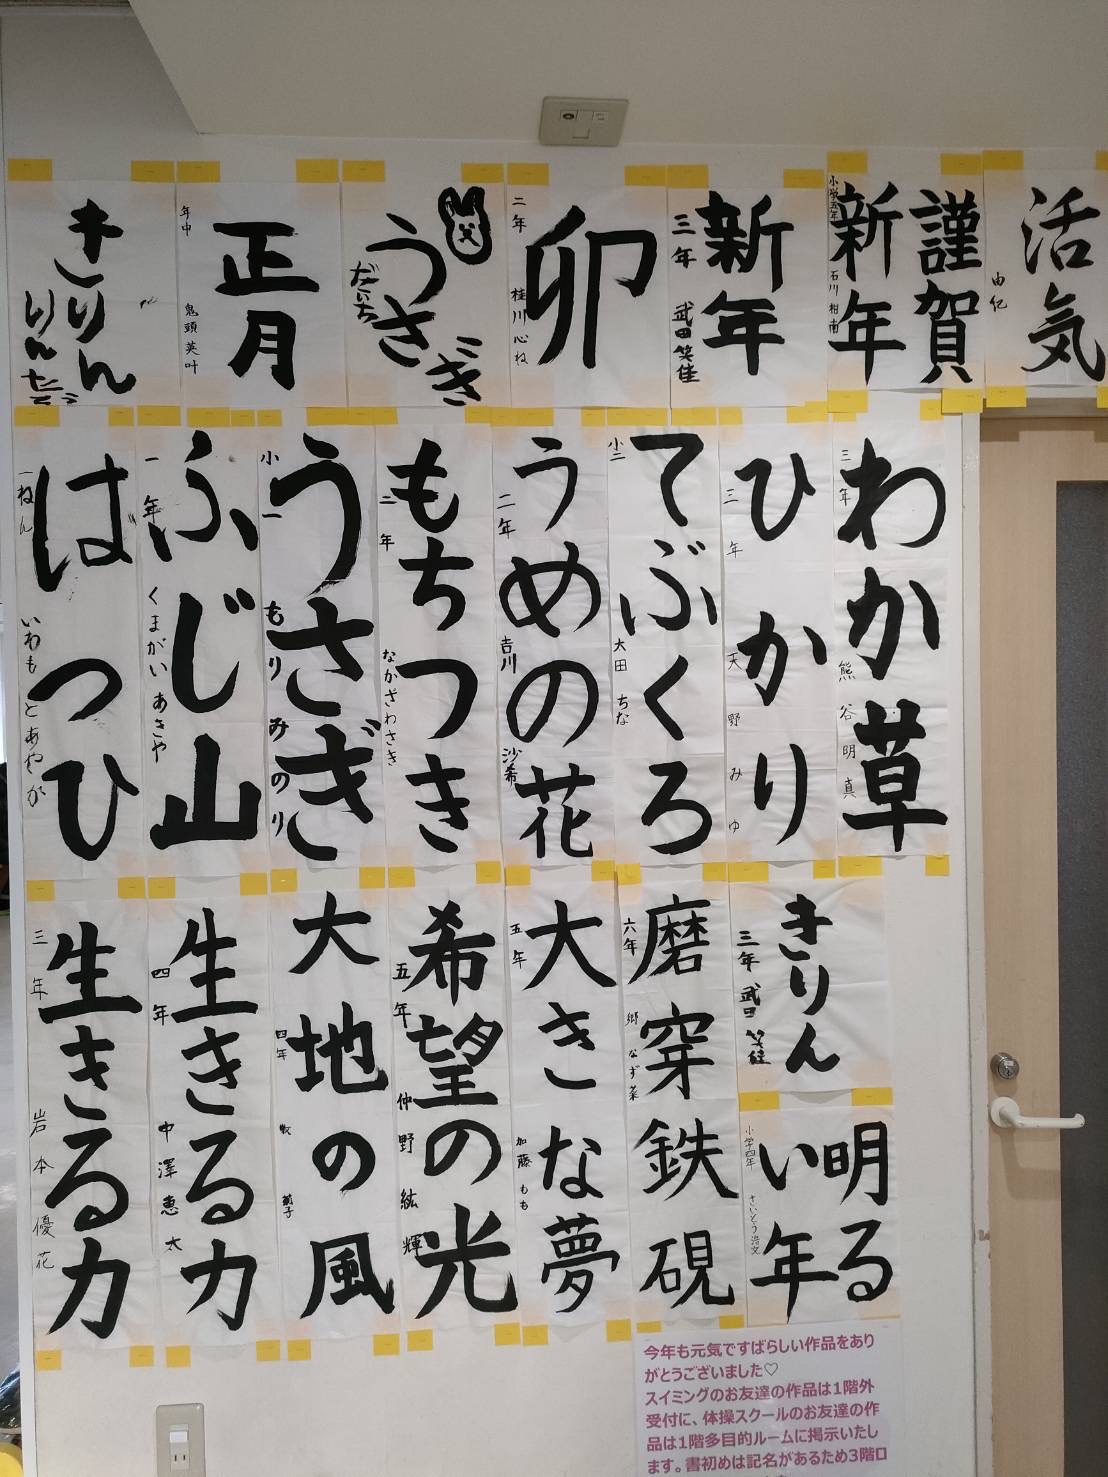 活気
由紀
謹賀
新年
小学五年
石川 柑南
新年
三年
武田笑佳
卯
二年
桂川心ね
うさぎ
だいち
正月
年中
鬼頭英叶
きりん
わか草
三年
熊谷明真
ひかり
三年
天野みゆ
てぶくろ
小二
大田ちな
うめの花
二年
吉川沙希
もちつき
二年
なかざわさき
うさぎ
小一
もりみのり
ふじ山
一年
くまがいあきや
はつひ
一ねん
いわもとあやか
きりん
三年
武田笑佳
明る
い年
小学四年
さいとう浩文
磨穿鉄硯
六年
郷なず菜
大きな夢
五年
加藤もも
希望の光
五年
仲野紘輝
大地の風
四年
生きる力
四年
中澤恵太
生きる力
三年
岩本優花
今年も元気ですばらしい作品をあり
がとうございました♡
スイミングのお友達の作品は1階外
受付に、体操スクールのお友達の作
品は1階多目的ルームに掲示いたし
ます。書初めは記名があるため3階ロ